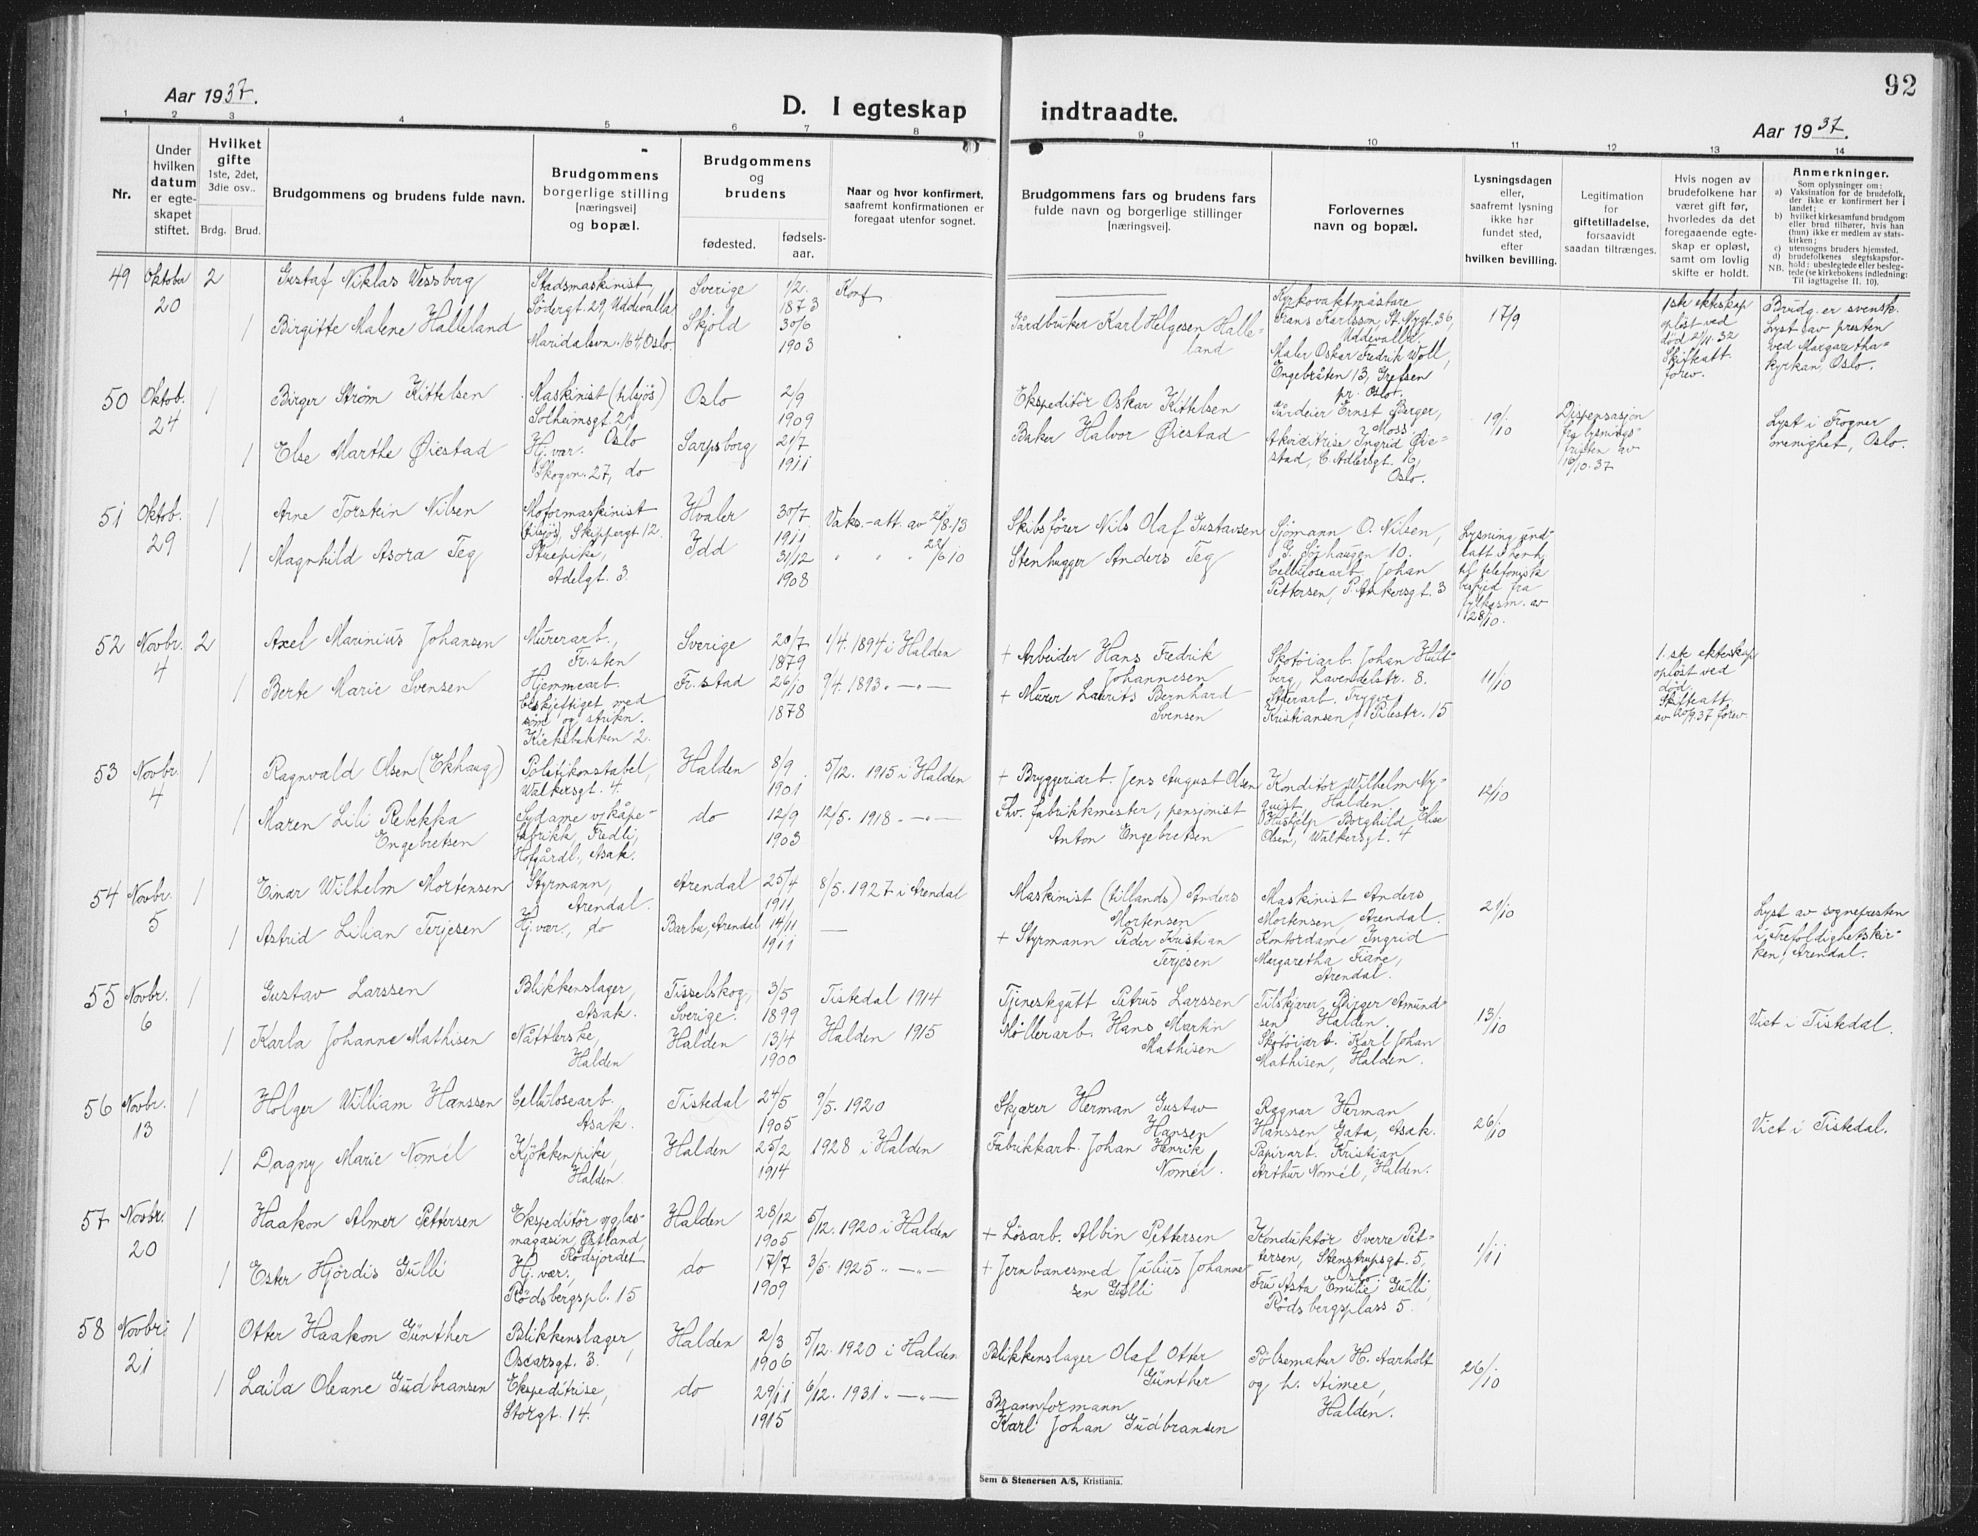 92
Aar 1937.
D. I egteskap indtraadte.
Aar 1937.
1 2 3 4 5 6 7 8 9 10 11 12 13 14
Nr.
Under hvilken datum er egteskapet stiftet.
Hvilket gifte 1ste, 2det, 3die osv..
Brdg. Brud.
Brudgommens og brudens fulde navn.
Brudgommens borgerlige stilling [næringsvei] og bopæl.
Brudgommens og brudens
fødested. fødsels-aar.
Naar og hvor konfirmert, saafremt konfirmationen er foregaat utenfor sognet.
Brudgommens fars og brudens fars fulde navn og borgerlige stillinger [næringsvei].
Forlovernes navn og bopæl.
Lysningsdagen eller, saafremt lysning ikke har fundet sted, efter hvilken bevilling.
Legitimation for giftetilladelse, forsaavidt saadan tiltrænges.
Hvis nogen av brudefolkene har været gift før, hvorledes da det foregaaende egteskap er opløst, samt om lovlig skifte er holdt.
Anmerkninger.
Som oplysninger om:
a) Vaksination for de brudefolk, der ikke er konfirmert her i landet;
b) hvilket kirkesamfund brudgom eller brud tilhører, hvis han (hun) ikke er medlem av statskirken;
c) utensogns bruders hjemsted.
d) brudefolkenes slegtskapsforhold: ubeslegtede eller beslegtede (se kirkebokens indledning:
NB. Til iagttagelse II. 10).
49 Oktober 20 2 Gustaf Niklas Wessberg Stadsmaskinist Södergt. 29, Uddevalla Sverige 1/2. 1873 Konf
Kyrkovaktmästare Frans Karlsson, St. Nygt. 36, Uddevalla.
17/9
1ste ekteskap opløst ved død 2/11.32 Skifteatt. forev.
Brudg. er svensk. Lyst av presten ved Margaretakyrkan, Oslo.
1 Birgitte Malene Halleland Maridalsvn. 164, Oslo. Skjold 30/6 1903
Gårdbruker Karl Helgesen Halleland
Maler Oskar Fredrik Woll, Engebråten 13, Grefsen pr. Oslo.
50 Oktob. 24 1 Birger Strøm Kittelsen Maskinist (tilsjøs) Solheimsgt. 2, Oslo Oslo 2/9 1909
Ekspeditör Oskar Kittelsen
Gårdeier Ernst Berger, Moss
19/10
Dispensasjon fra lysningsfristen av 16/10.37
Lyst i Frogner menighet, Oslo.
1 Else Marthe Øiestad Hj. vær. Skogvn. 27, do Sarpsborg 21/7 1911
Baker Halvor Øiestad
Ingrid Øiestad, C. Adlersgt. 10, Oslo.
51 Oktob. 29 1 Arne Torstein Nilsen Motormaskinist (tilsjøs), Skippergt. 12. Hvaler 30/7 1911 Vaks.-att. av 21/8.13
Skibsfører Nils Olaf Gustavsen
Sjømann O. Nilsen, G. Sørhaugen 10.
Lysning undlatt i henh. til telefonisk beskjed fra fylkesm. av 28/10.
1 Magnhild Asora Teg Strøpike, Adelgt. 3. Idd 31/12 1908 " " " 22/6 10
Stenhugger Anders Teg
Cellulosearb. Johan Pettersen, P. Ankersgt. 3
52 Novbr. 4 2 Axel Marinius Johansen Murerarb., Fr.sten Sverige 20/7 1879 1/4. 1894 i Halden
+ Arbeider Hans Fredrik Johannesen
Skotøiarb. Johan Hultberg, Lavendelstr. 8.
11/10
1. ste ekteskap opløst ved død. Skifteatt. av 20/9.37 forev.
1 Berte Marie Svensen Hjemmearb. beskjeftiget med søm og strikn. Kirkebakken 2. Fr.stad 26/10 1878 9/4. 1893. — " —
+ Murer Laurits Bernhard Svensen
Trygve Kristiansen, Pilestr. 15
53 Novbr. 4 1 Ragnvald Olsen (Ekhaug) Politikonstabel, Walkersgt. 4. Halden 8/9 1901 5/12. 1915 i Halden
+ Bryggeriarb. Jens August Olsen
Konditör Wilhelm Nyquist, Halden.
12/10
1 Maren Lili Rebekka Engebretsen Sydame v/ kåpefabrikk, Fredli, Hofgårdl., Asak. do 12/9 1903 12/5. 1918 — " —
Fhv. fabrikkmester, pensjonist Anton Engebretsen
Hushjelp Borghild Elise Olsen, Walkersgt. 4
54 Novbr. 5 1 Einar Wilhelm Mortensen Styrmann, Arendal. Arendal 25/4 1911 8/5. 1927 i Arendal
Maskinist (tillands) Anders Mortensen
Maskinist Anders Mortensen, Arendal.
21/10
Lyst av sognepresten i Trefoldighetskirken, Arendal.
1 Astrid Lilian Terjesen Hj. vær., do Barbu, Arendal 14/11 1911 —
+ Styrmann Peder Kristian Terjesen
Kontordame Ingrid Margaretha Fiane, Arendal.
55 Novbr. 6 1 Gustav Larssen Blikkenslager, Asak. Tisselskog, Sverige. 3/5 1899 Tistedal 1914
Tjenestgutt Petrus Larssen
Tilskjærer Birger Amundsen Halden.
13/10
Viet i Tistedal.
1 Karla Johanne Mathisen Nåtlerske, Halden Halden 13/4 1900 Halden 1915
Møllerarb. Hans Martin Mathisen
Skotøiarb. Karl Johan Mathisen, Halden.
56 Novbr. 13 1 Holger William Hanssen Cellulosearb. Asak. Tistedal 24/5 1905 9/5. 1920
Skjærer Herman Gustav Hansen
Ragnar Herman Hanssen, Gata, Asak.
26/10
Viet i Tistedal.
1 Dagny Marie Nomél Kjøkkenpike, Halden. Halden 25/2 1914 1928 i Halden
Fabrikkarb. Johan Henrik Nomél.
Papirarb. Kristian Arthur Nomél, Halden.
57 Novbr. 20 1 Haakon Almer Pettersen Ekspeditör v/glasmagasin, Østland, Rødsjordet Halden 28/12 1905 5/12. 1920 i Halden
+ Løsarb. Albin Pettersen
Konduktør Sverre Pettersen, Stenstrupsgt. 5, Oslo.
1/11
1 Ester Hjördis Gulli Hj. vær, Rødsbergspl. 15 do 17/7 1909 3/5. 1925 " — " —
+ Jernbanesmed Julius Johannesen Gulli
Fru Asta Emilie Gulli, Rødsbergsplass 5.
58 Novbr. 21 1 Otter Haakon Günther Blikkenslager, Oscarsgt. 3. Halden 2/3 1906 5/12. 1920 i Halden
Blikkenslager Olaf Otter Günther
Pølsemaker H. Aarholt og h. Aimee, Halden.
26/10
1 Laila Oleane Gudbransen Ekspeditrise, Storgt. 14. do 29/11 1915 6/12. 1931 " — " —
Brannformann Karl Johan Gudbransen
Sem & Stenersen A/S, Kristiania.